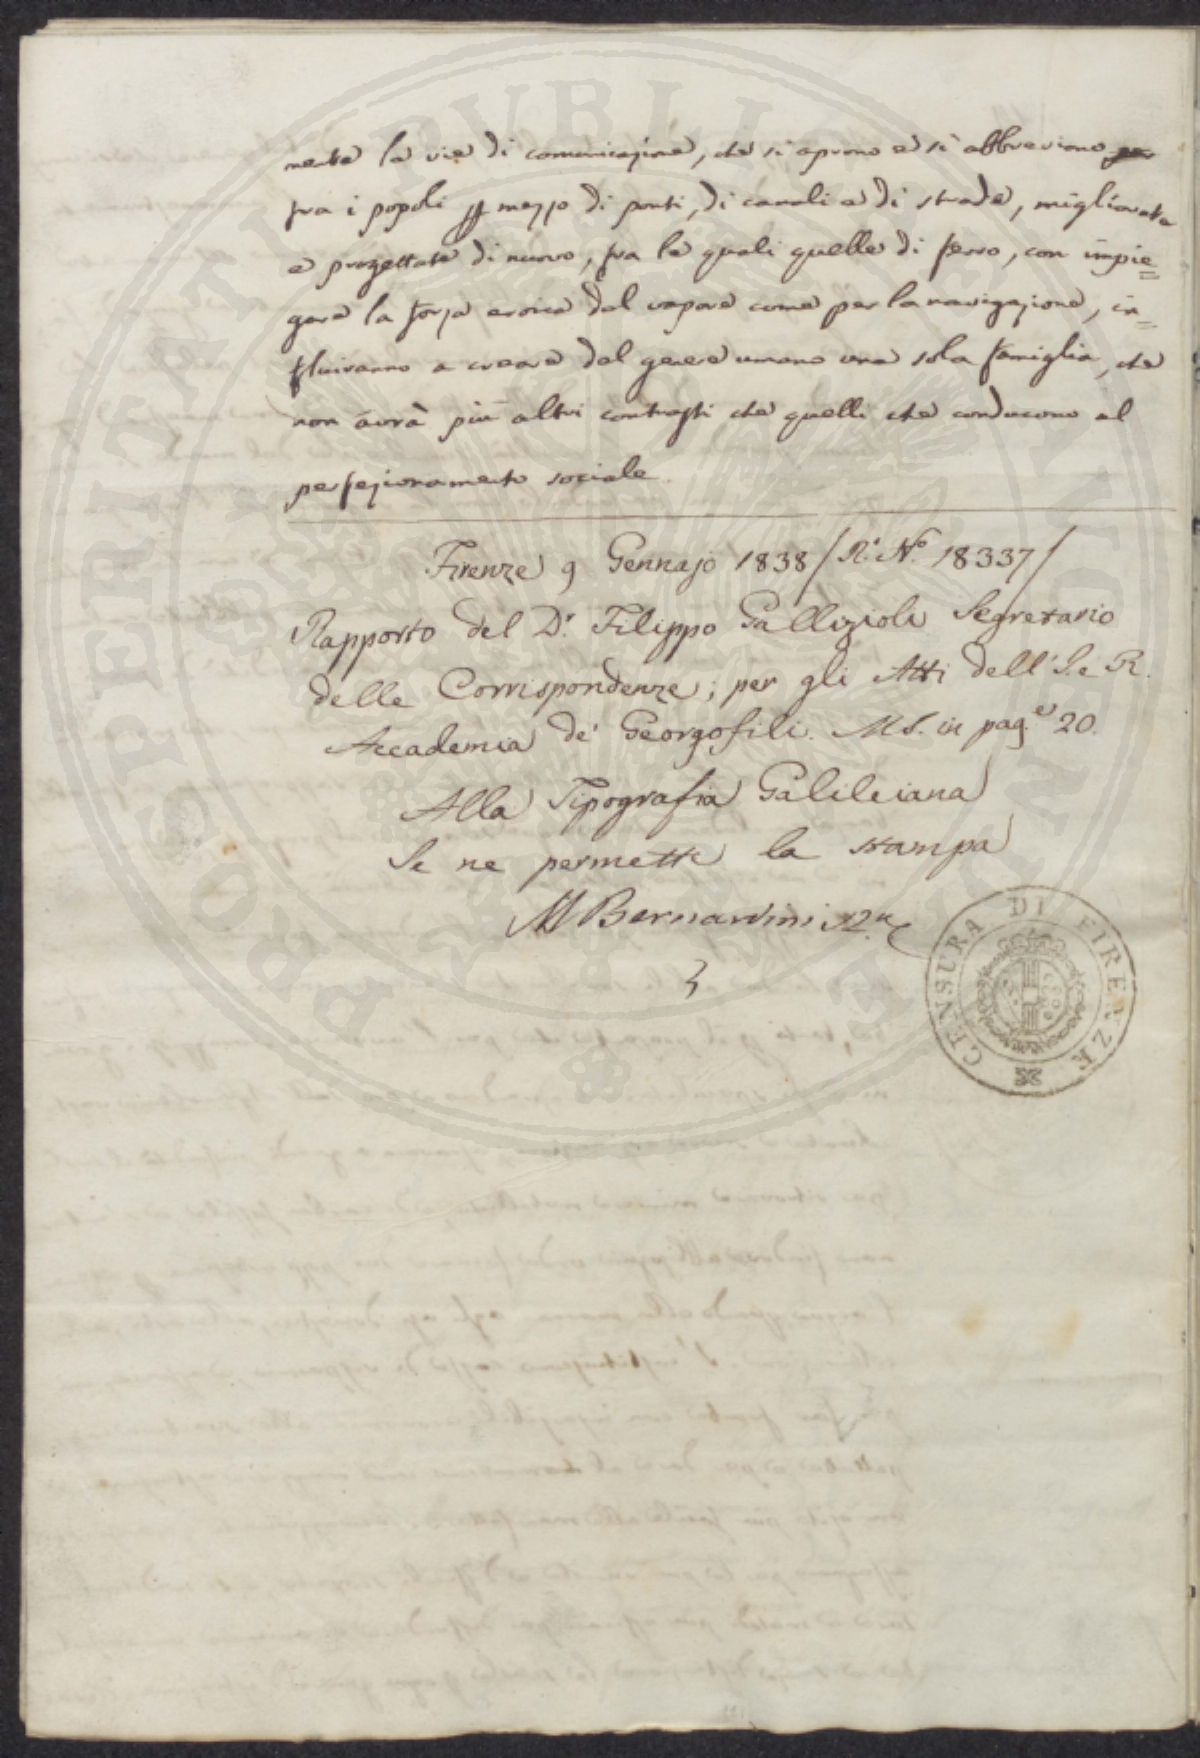 mente le vie di comunicazione, che si aprono e si abbreviono per
fra i popoli p mezzo di ponti, di canali e di strade, migliorate
e progettate di nuovo, fra le quali quelle di ferro, con impie=
gare la forza eroica del vapore come per la navigazione, in=
fluiranno a creare del genere umano una sola famiglia, che
non avrà più altri contrasti che quelli che conducono al
perfezionamento sociale.
Firenze 9 Gennajo 1838 / R.º N.º 18337/
Rapporto del D.r Filippo Gallizioli Segretario
delle Corrispondenze; per gli Atti dell' I. e R.
Accademia de' Georgofili. M.S. in pag.e 20.
Alla Tipografia Galileiana
Se ne permette la stampa
M Bernardini
CENSURA DI FIRENZE
PROSPERITATI PUBLICAE